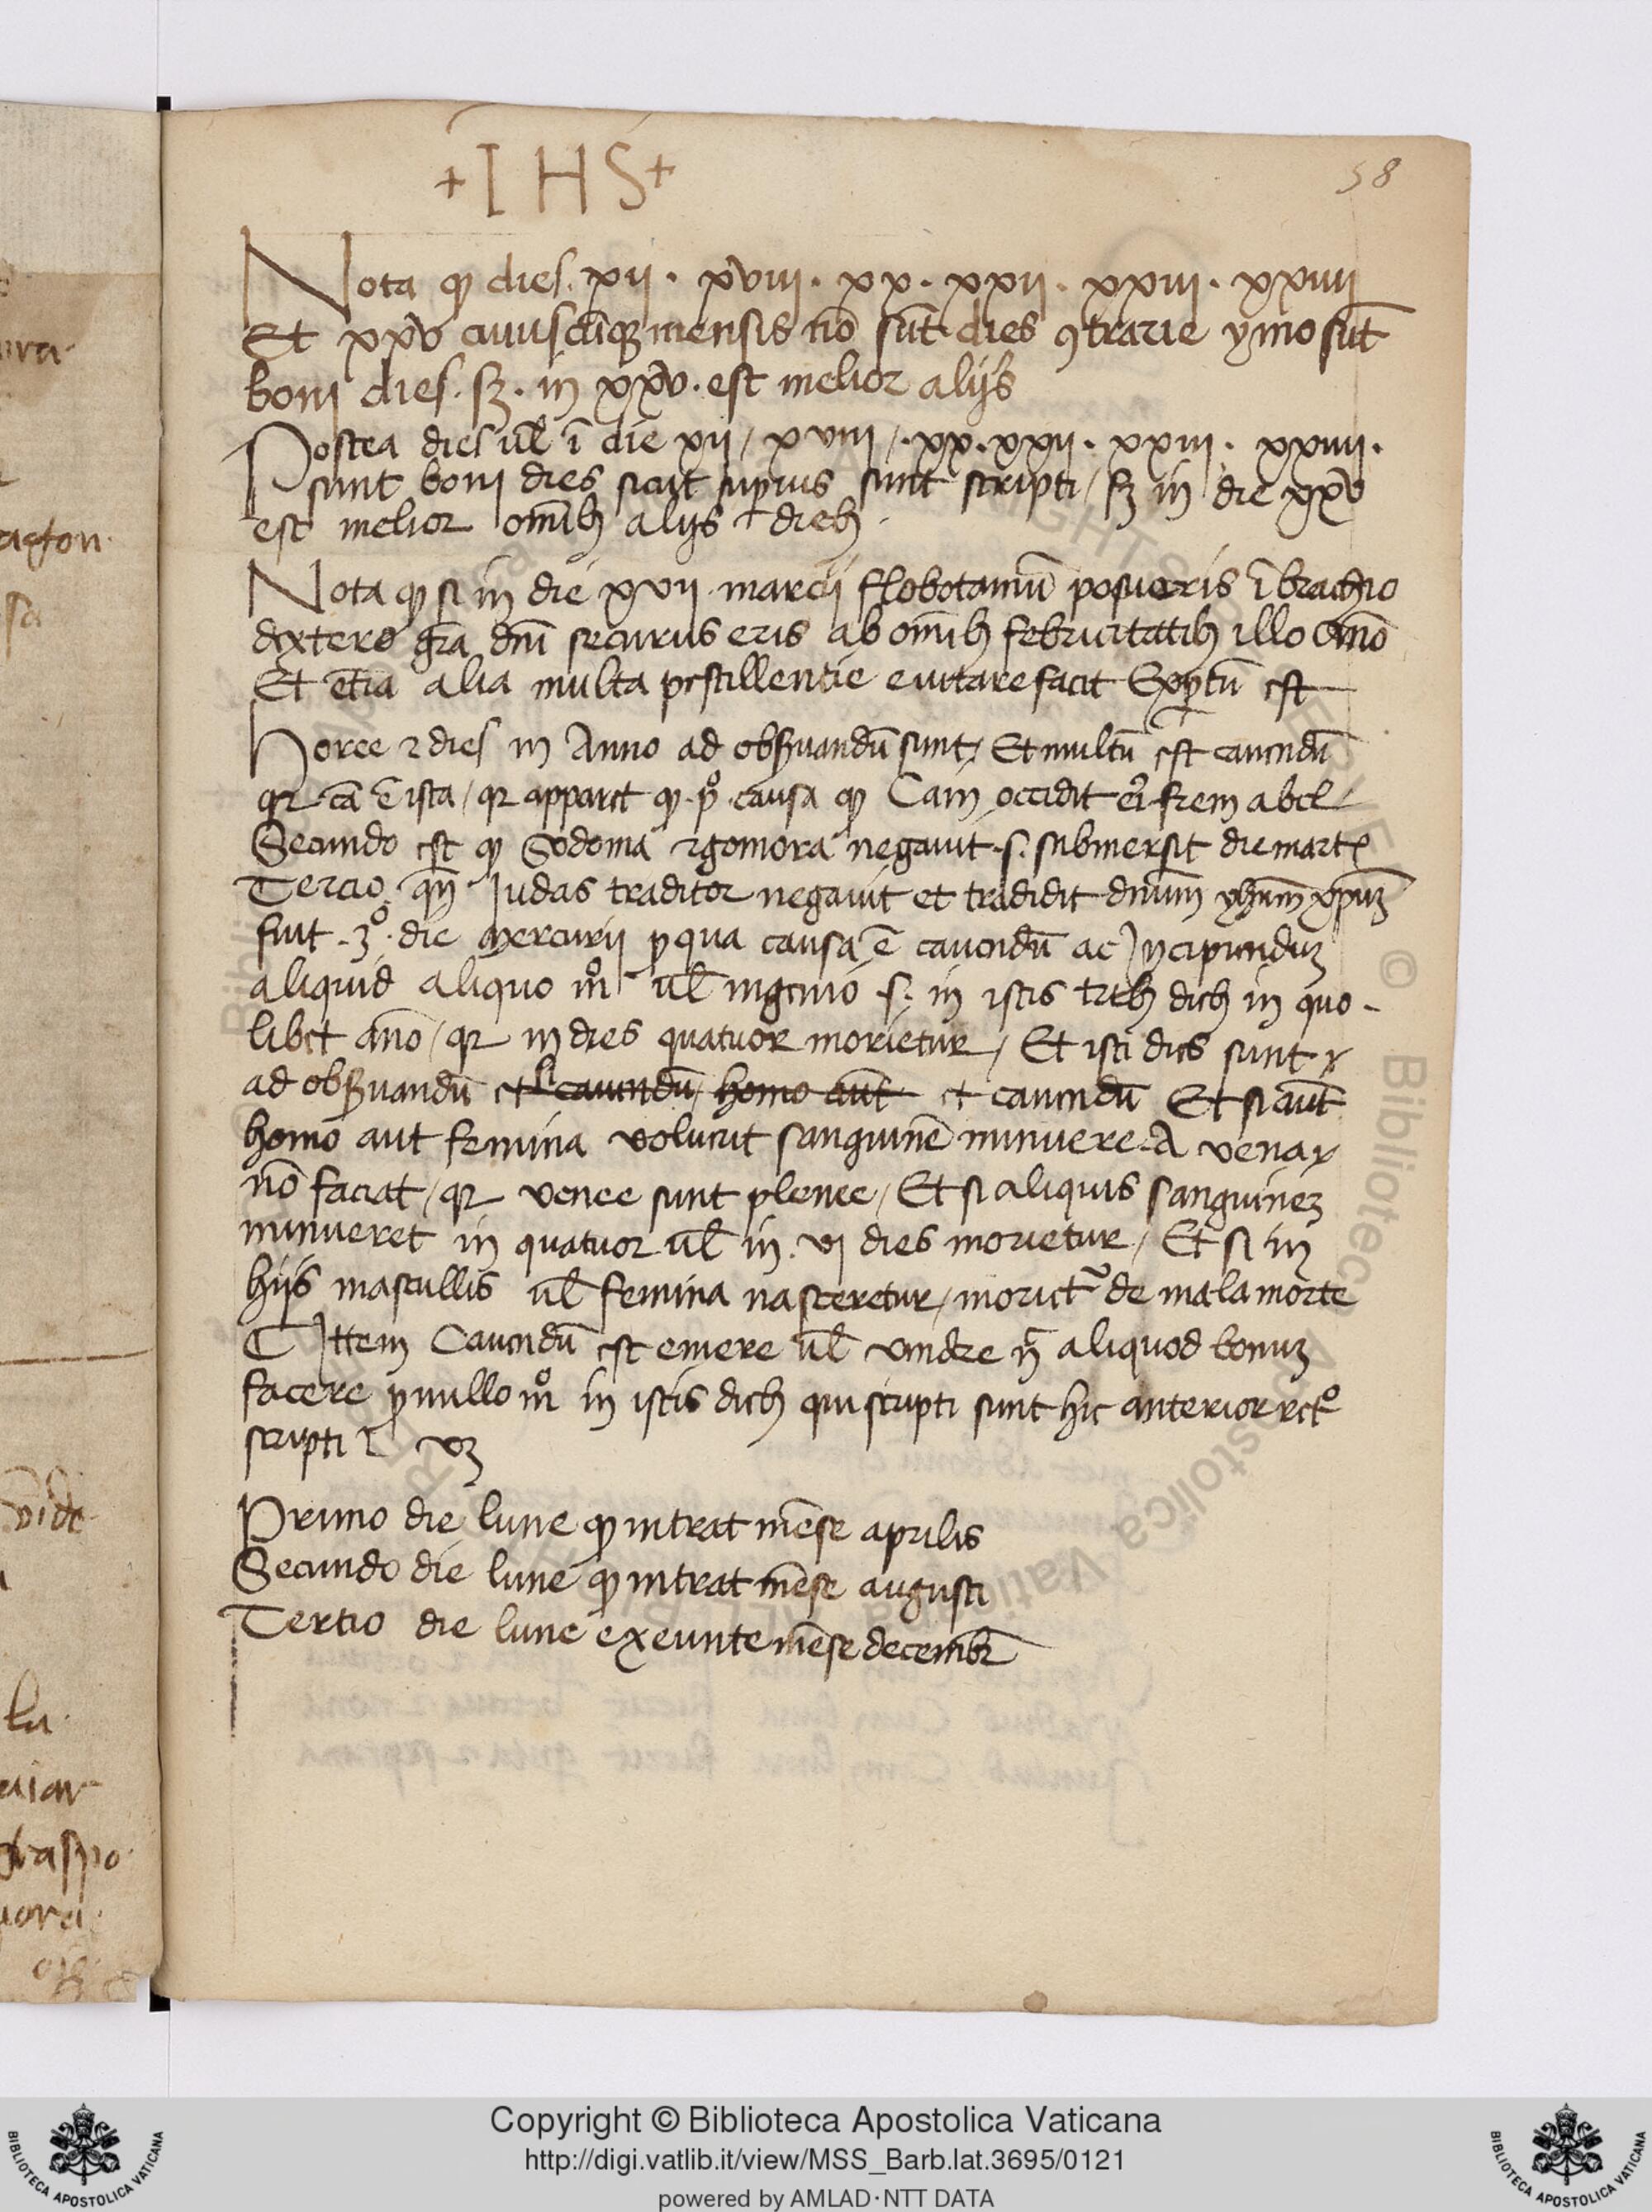 + I H S +
58
Nota ꝙ dies. xii. xviii. xx. xxii. xxiii. xxiiii
Et xxv cuiuscūqꝫ mensis nō sūt dies ꝯtrarie ymo sūt
boni dies. sꝫ. in xxv. est melior alijs
Postea dies ul̄ ī die xii / xviii /. xx. xxii. xxiii. xxiiii.
sunt boni dies sicut suꝑius sunt scripti / sꝫ in die xxv
est melior om̄ibꝫ alijs dieb
Nota ꝙ si in die xvii marcij flobotamū posueris ī brachio
dextero gr̄a dn̄i securus eris ab om̄ibꝫ febricitatibꝫ illo Ano
Et etiā alia multa pestillentie euitare facit Exꝑtū est
Horee ⁊ dies in Anno ad obs̄uandū sunt / Et multū est cauendū
qꝛ cā ē ista / qꝛ apparet ꝙ. pº causa ꝙ Cain occidit ei frem abel
Secundo est ꝙ Sodoma ⁊ gomora negauit .s. submersit die mart
Tercio qn̄ Iudas traditor negauit et tradidit dnūm yhum xpum
fuit .3º. die mercurij ꝑ qua causa ē cauendū ac Incipiendū
aliquid aliquo mº ul̄ ingenio .s. in istis trib dieb in quo-
libet ano / qꝛ in dies quatuor morietur / Et isti dies sunt
ad obs̄uandū et cauendū / homo aut et cauendū Et si aut
homo aut femina voluerit sanguinē minuere A vena
nō faciat / qꝛ venee sunt plenee / Et si aliquis sanguinem
minueret in quatuor ul̄ in. vi dies morietur / Et si in
hijs mascullis ul̄ femina nasceretur / moriet de mala morte
Ittem Cauendū est emere ul̄ vendere aliquod bonum
facere ꝑ nullo mº in istis dieb qui scripti sunt hic anterior
scripti vꝫ
Primo die lune ꝙ intrat mēse aprilis
Secundo die lune ꝙ intrat mēse augusti
Tertio die lune exeunte mēse decembr
Copyright © Biblioteca Apostolica Vaticana
http://digi.vatlib.it/view/MSS_Barb.lat.3695/0121
powered by AMLAD·NTT DATA
BIBLIOTECA APOSTOLICA VATICANA
BIBLIOTECA APOSTOLICA VATICANA